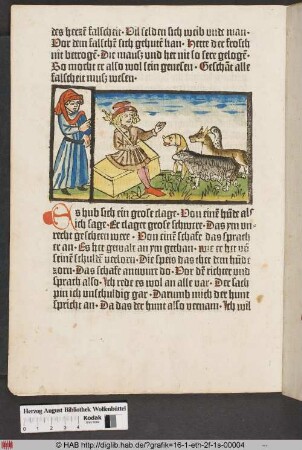 des herczē falscheit· Vil selden sich weib vnde man·
Vor den falschē sich gehutē han· Hette der frosch
nit betrogē· Die maus vnd her nit so sere gelogē·
So mocht er also wol sein genesen· Geschāt alle
falscheit mus wesen·
Es hub sich ein grose clage· Von einē hūde als
ich sage· Er clagte grose schwere· Das ym vn
recht geschehen were· Von einē schafe das sprach
er an· Es het gewalt an ym gethan· wie er het võ
seinē schuldē verlorn· Die speis das thet dem hūde
zorn· Das schaf antwurt do· Vor dē richter vnd
sprach also· Ich rede es wol an alle var· Der sach
pin ich vnschuldig gar· Darumb mich der hunt
spricht an· Da das der hunt also vernam· Ich wil
Herzog August Bibliothek Wolfenbüttel
Kodak
© HAB http://diglib.hab.de/?grafik=16-1-eth-2f-1s-00004